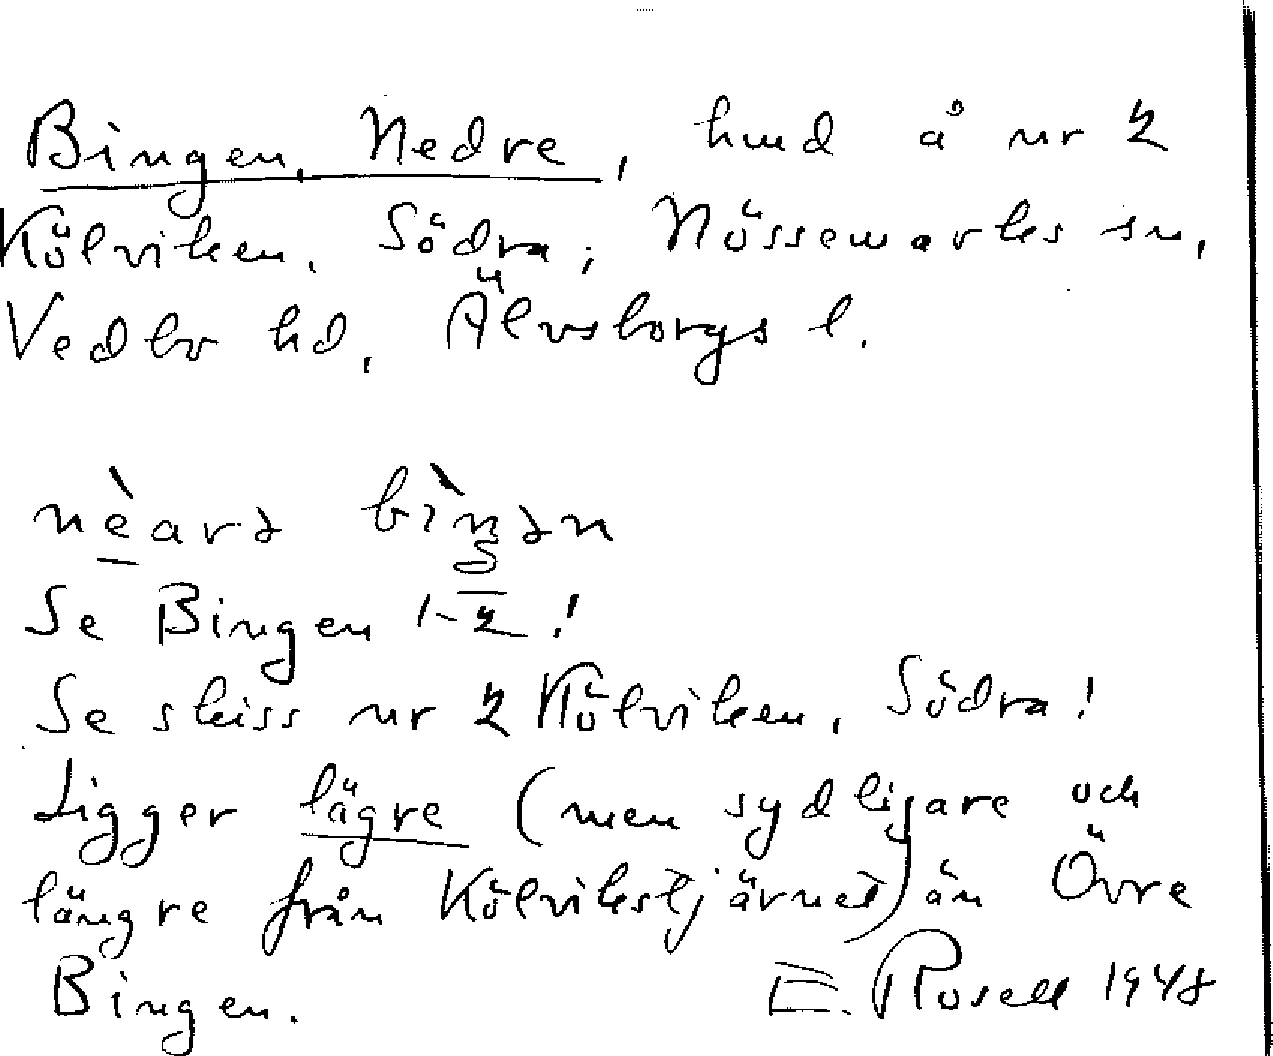 Bingen, Nedre, hmd å nr 2
Kölviken, Södra; Nössemarks sn,
Vedbo hd, Älvsborgs l.
nèarə bìŋən
Se Bingen 1-2!
Se skiss nr 2 Kölviken, Södra!
Ligger lägre (men sydligare och
längre från Kölvikstjärnet) än Övre
Bingen. E. Rosell 1948